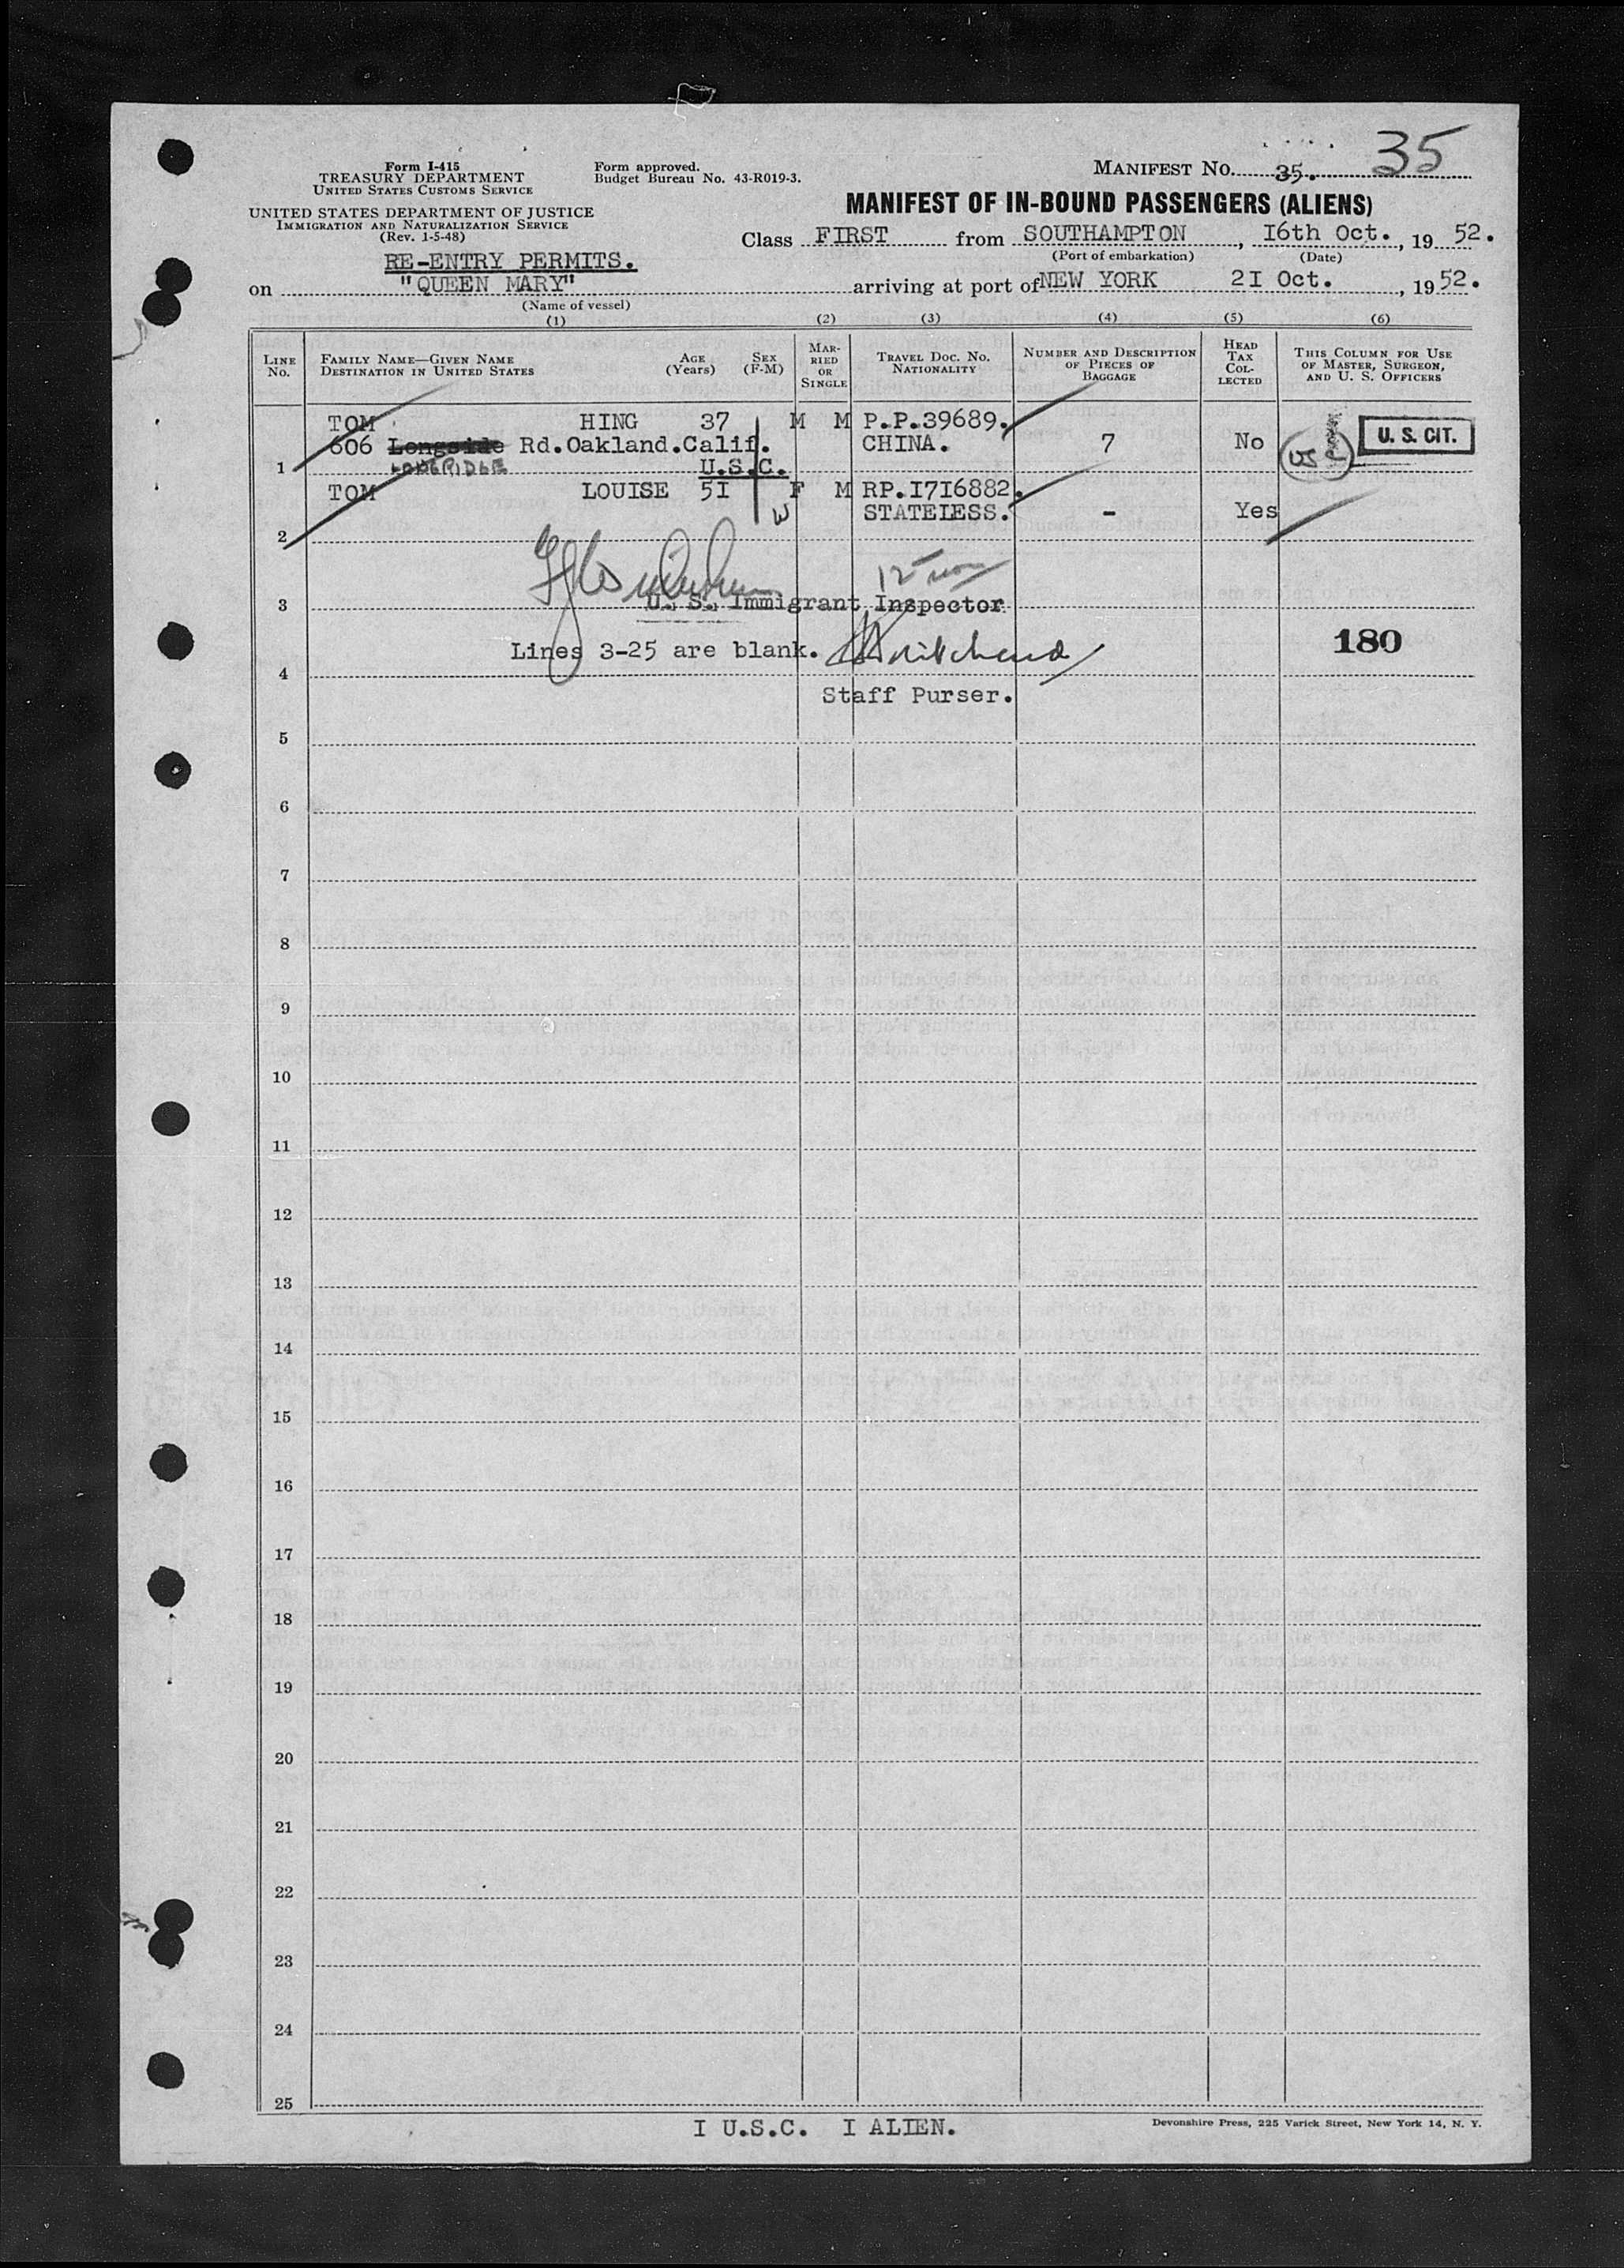 35
Form I-415
TREASURY DEPARTMENT
UNITED STATES CUSTOMS SERVICE
Form approved.
Budget Bureau No. 43-R019-3.
MANIFEST NO. 35.
UNITED STATES DEPARTMENT OF JUSTICE
IMMIGRATION AND NATURALIZATION SERVICE
(Rev. 1-5-48)
MANIFEST OF IN-BOUND PASSENGERS (ALIENS)
Class FIRST from SOUTHAMPTON, I6th Oct., 19 52.
(Port of embarkation) (Date)
RE-ENTRY PERMITS.
on "QUEEN MARY" arriving at port of NEW YORK 2I Oct., 19 52.
(Name of vessel)
(1) (2) (3) (4) (5) (6)
LINE NO. FAMILY NAME—GIVEN NAME DESTINATION IN UNITED STATES AGE (Years) SEX (F-M) MARRIED OR SINGLE TRAVEL DOC. NO. NATIONALITY NUMBER AND DESCRIPTION OF PIECES OF BAGGAGE HEAD TAX COLLECTED THIS COLUMN FOR USE OF MASTER, SURGEON, AND U. S. OFFICERS
TOM HING 37 M M P.P.39689.
606 Longside Rd.Oakland.Calif. CHINA. 7 No US C U. S. CIT.
1 LONGRIDGE U.S.C.
TOM LOUISE 5I F M RP.I7I6882.
W STATELESS. - Yes
2
3 U. S. Immigrant Inspector
Lines 3-25 are blank. 180
4
Staff Purser.
5
6
7
8
9
10
11
12
13
14
15
16
17
18
19
20
21
22
23
24
25
I U.S.C. I ALIEN.
Devonshire Press, 225 Varick Street, New York 14, N. Y.